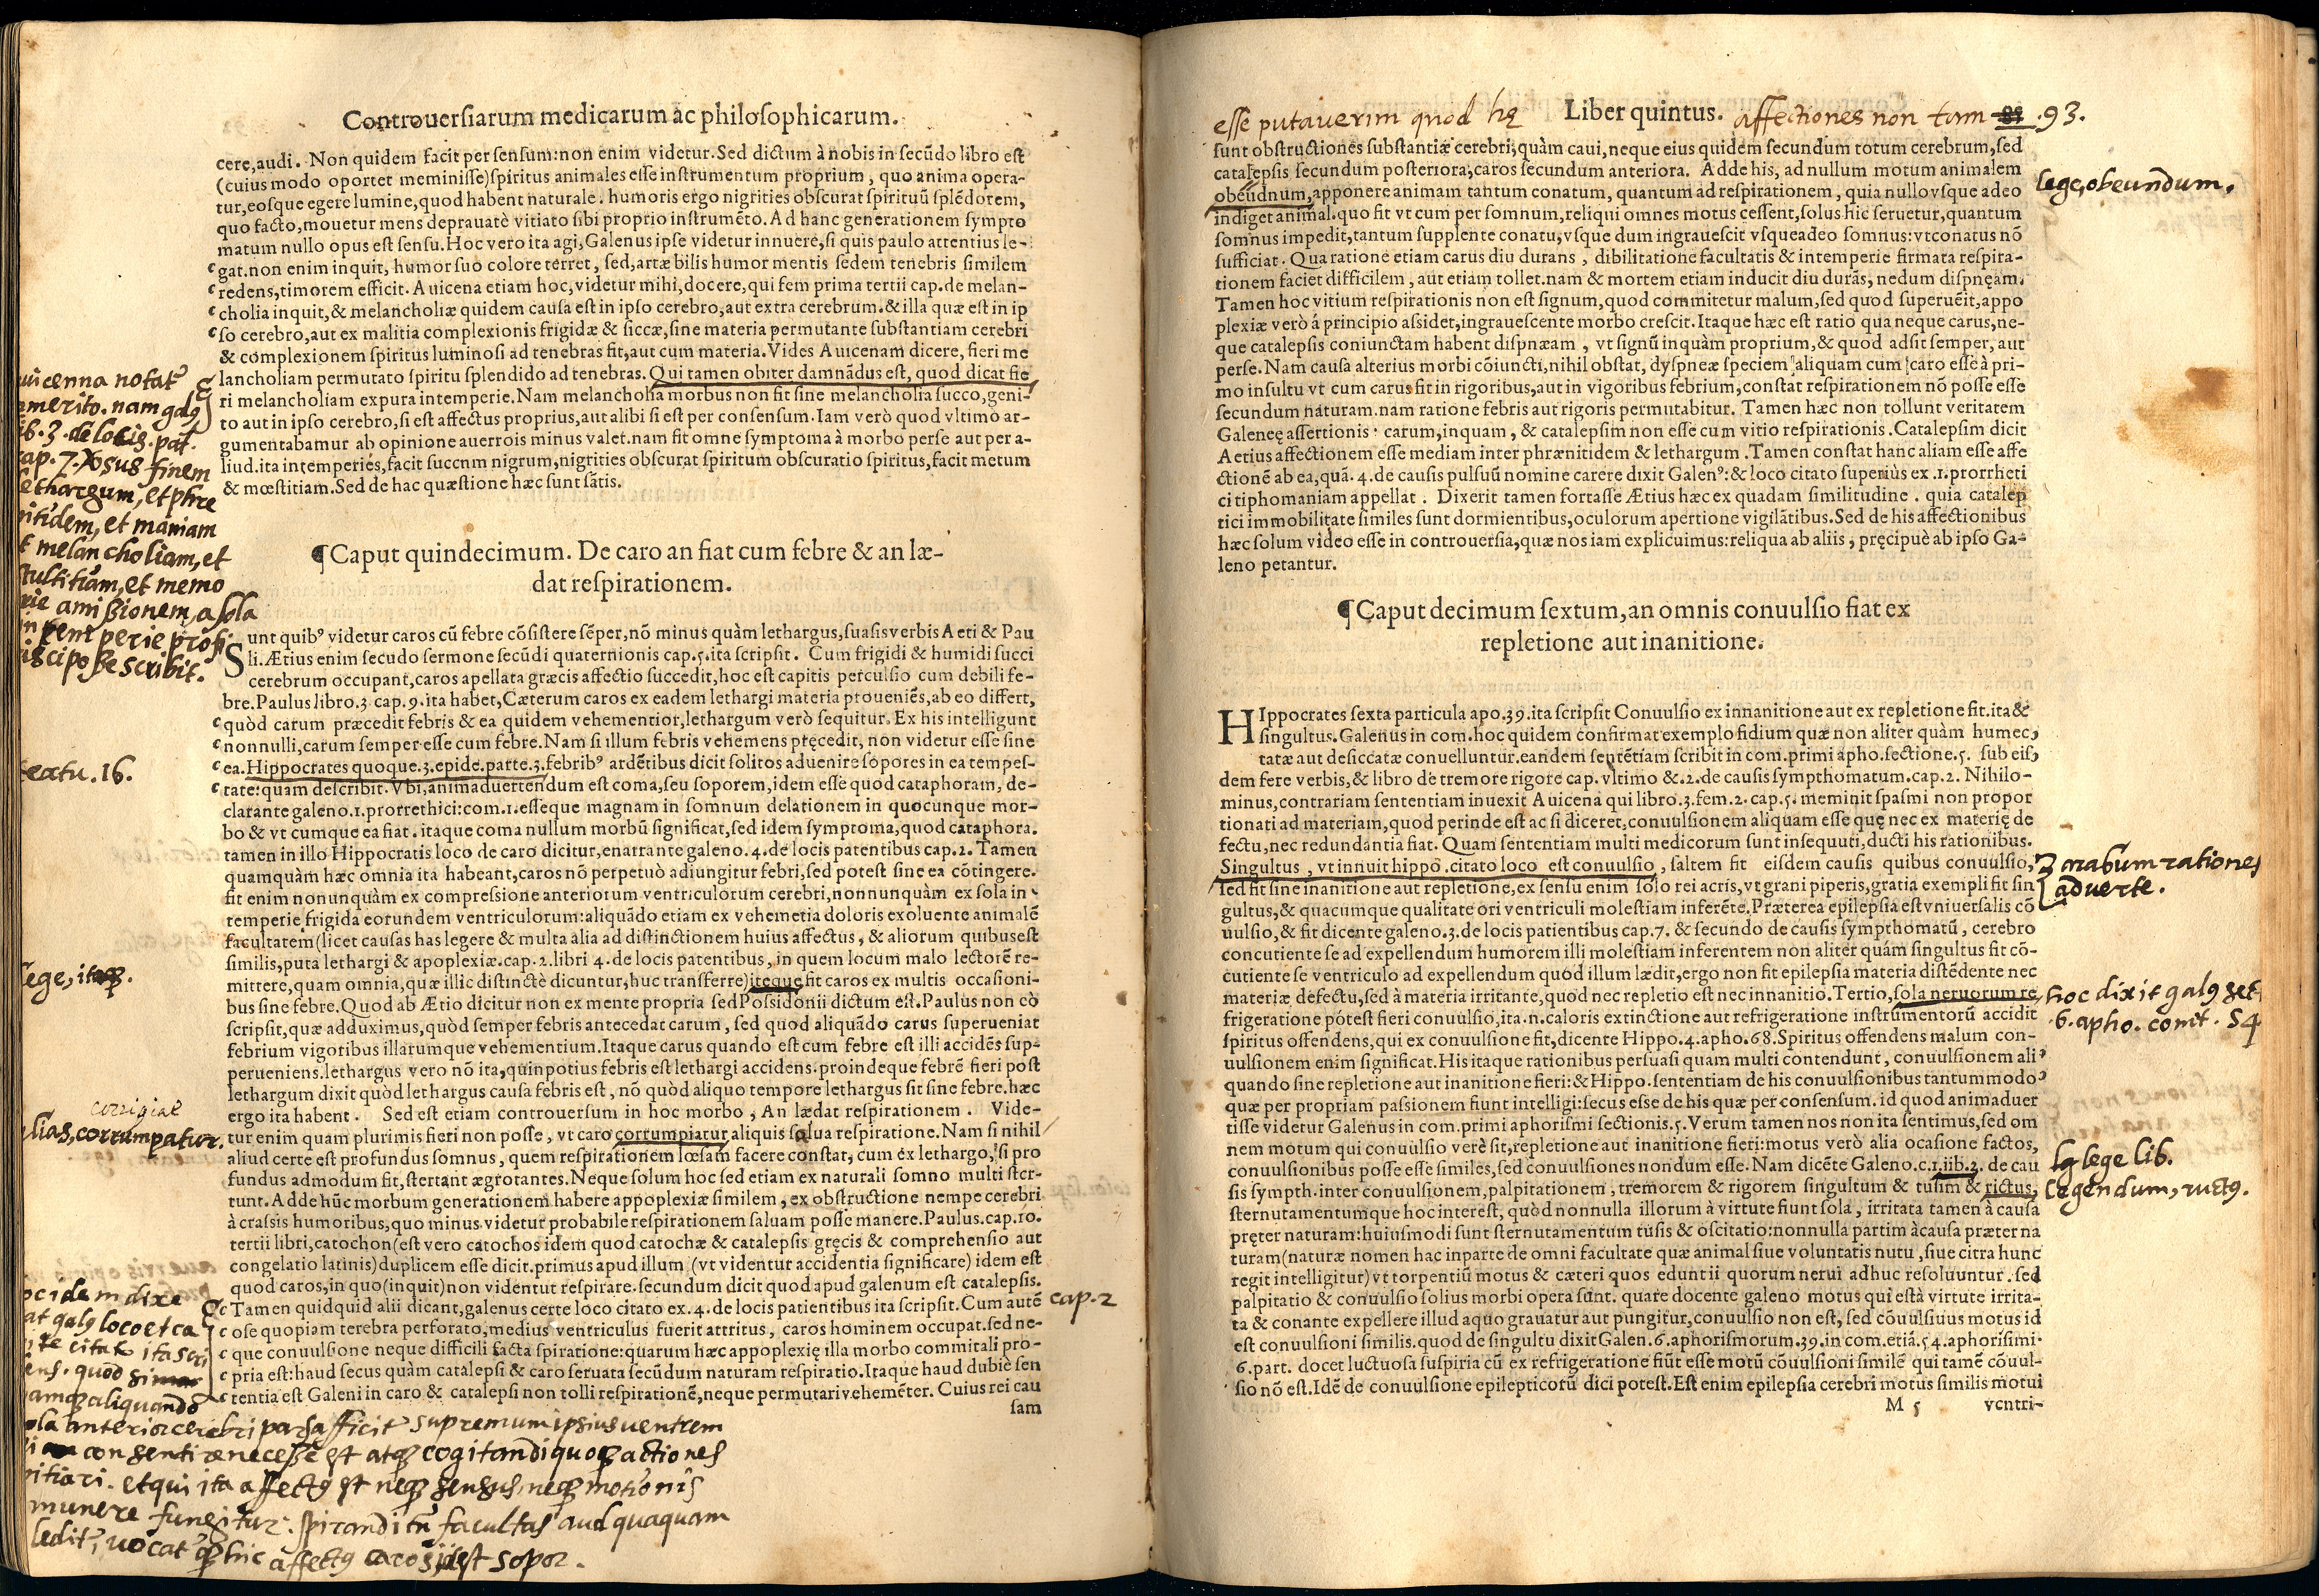 Controuersiarum medicarum ac philosophicarum.
cere,audi. Non quidem facit per sensum:non enim videtur.Sed dictum à nobis in secũdo libro est
(cuius modo oportet meminisse)spiritus animales esse instrumentum proprium, quo anima opera-
tur,eosque egere lumine,quod habent naturale. humoris ergo nigrities obscurat spirituũ splẽdorem,
quo facto,mouetur mens deprauatè vitiato sibi proprio instrumẽto. Ad hanc generationem sympto
matum nullo opus est sensu.Hoc vero ita agi,Galenus ipse videtur innuere,si quis paulo attentius le-
gat.non enim inquit, humor suo colore terret, sed,artæ bilis humor mentis sedem tenebris similem
redens,timorem efficit. Auicena etiam hoc,videtur mihi,docere,qui fem prima tertii cap.de melan-
cholia inquit,& melancholiæ quidem causa est in ipso cerebro,aut extra cerebrum.& illa quæ est in ip
so cerebro,aut ex malitia complexionis frigidæ & siccæ,sine materia permutante substantiam cerebri
& complexionem spiritus luminosi ad tenebras fit,aut cum materia.Vides Auicenam dicere, fieri me
lancholiam permutato spiritu splendido ad tenebras.Qui tamen obiter damnãdus est, quod dicat fie
ri melancholiam expura intemperie.Nam melancholia morbus non fit sine melancholia succo,geni-
to aut in ipso cerebro,si est affectus proprius,aut alibi si est per consensum.Iam verò quod vltimo ar-
gumentabamur ab opinione auerrois minus valet.nam fit omne symptoma à morbo perse aut per a-
liud.ita intemperies,facit succnm nigrum,nigrities obscurat spiritum obscuratio spiritus,facit metum
& mœstitiam.Sed de hac quæstione hæc sunt sãtis.
uicenna notat
merito. nam galꝰ
ib. 3. de locis. pat.
cap. 7. finem
lethargum, et phre
nitidem, et maniam
et melancholiam, et
stultitiam, et memo
rie amissionem, a sola
intemperie profi
cisci posse scribit.
¶Caput quindecimum. De caro an fiat cum febre & an læ-
dat respirationem.
Sunt quibꝰ videtur caros cũ febre cõsistere sẽper,nõ minus quàm lethargus,suasis verbis Aeti & Pau
li.Ætius enim secudo sermone secũdi quaternionis cap.5.ita scripsit. Cum frigidi & humidi succi
cerebrum occupant,caros apellata græcis affectio succedit,hoc est capitis perculsio cum debili fe-
bre.Paulus libro.3 cap.9.ita habet,Cæterum caros ex eadem lethargi materia proueniẽs,ab eo differt,
quòd carum præcedit febris & ea quidem vehementior,lethargum verò sequitur. Ex his intelligunt
nonnulli,carum semper esse cum febre.Nam si illum febris vehemens pręcedit, non videtur esse sine
ea.Hippocrates quoque.3.epide.parte.3.febribꝰ ardẽtibus dicit solitos aduenire sopores in ea tempes-
tate:quam describit.Vbi,animaduertendum est coma,seu soporem,idem esse quod cataphoram, de-
clarante galeno.1.prorrethici:com.1.esseque magnam in somnum delationem in quocunque mor-
bo & vt cumque ea fiat. itaque coma nullum morbũ significat,sed idem symptoma,quod cataphora.
tamen in illo Hippocratis loco de caro dicitur,enarrante galeno.4.de locis patentibus cap.2. Tamen
quamquàm hæc omnia ita habeant,caros nõ perpetuò adiungitur febri,sed potest sine ea cõtingere.
fit enim nonunquàm ex compressione anteriorum ventriculorum cerebri,nonnunquàm ex sola in
temperie frigida eorundem ventriculorum:aliquãdo etiam ex vehemetia doloris exoluente animalẽ
facultatem(licet causas has legere & multa alia ad distinctionem huius affectus, & aliorum quibus est
similis,puta lethargi & apoplexiæ.cap.2.libri 4.de locis patentibus, in quem locum malo lectorẽ re-
mittere,quam omnia,quæ illic distinctè dicuntur,huc transferre)iteque fit caros ex multis occasioni-
bus sine febre.Quod ab Ætio dicitur non ex mente propria sed Possidonii dictum est.Paulus non eò
scripsit,quæ adduximus,quòd semper febris antecedat carum, sed quod aliquãdo carus superueniat
febrium vigoribus illarumque vehementium.Itaque carus quando est cum febre est illi accidẽs sup-
perueniens.lethargus vero nõ ita,quinpotius febris est lethargi accidens.proindeque febrẽ fieri post
lethargum dixit quòd lethargus causa febris est, nõ quòd aliquo tempore lethargus sit sine febre.hæc
ergo ita habent. Sed est etiam controuersum in hoc morbo, An lædat respirationem. Vide-
tur enim quam plurimis fieri non posse, vt caro corrumpiatur aliquis salua respiratione.Nam si nihil
aliud certe est profundus somnus, quem respirationem lœsam facere constat, cum ex lethargo, si pro
fundus admodum fit,stertant ægrotantes.Neque solum hoc sed etiam ex naturali somno multi ster-
tunt.Adde hũc morbum generationem habere appoplexiæ similem, ex obstructione nempe cerebri
à crassis humoribus,quo minus videtur probabile respirationem saluam posse manere.Paulus.cap.10.
tertii libri,catochon(est vero catochos idem quod catochæ & catalepsis gręcis & comprehensio aut
congelatio latinis)duplicem esse dicit.primus apud illum (vt videntur accidentia significare) idem est
quod caros,in quo(inquit)non videntur respirare.secundum dicit quod apud galenum est catalepsis.
Tamen quidquid alii dicant,galenus certe loco citato ex.4.de locis patientibus ita scripsit.Cum autẽ
ose quopiam terebra perforato,medius ventriculus fuerit attritus, caros hominem occupat.sed ne-
que conuulsione neque difficili facta spiratione:quarum hæc appoplexię illa morbo commitali pro-
pria est:haud secus quàm catalepsi & caro seruata secũdum naturam respiratio.Itaque haud dubiè sen
tentia est Galeni in caro & catalepsi non tolli respirationẽ,neque permutari vehemẽter. Cuius rei cau
sam
textu. 16.
lege, itaqꝫ.
corrigiat
alias, corrumpatur.
cap. 2
oc idem dixe
rat galꝰ loco et ca
ita scri
bens. quod
namqꝫ aliquando
sola anterior cerebri pars afficit supremum ipsius uentrem
consentire necesse est atqꝫ cogitandi quoqꝫ actiones
vitiari. et qui ita affectꝰ est neqꝫ sensus, neqꝫ motionis
munere fungitur. spirandi tñ facultas aud quaquam
leditr, uocatr qꝫ hic affectꝰ caros, idest sopor.
esse putauerim quod hę Liber quintus. affectiones non tam 93.
sunt obstructiones substantiæ cerebri,quàm caui,neque eius quidem secundum totum cerebrum,sed
catalepsis secundum posteriora,caros secundum anteriora. Adde his, ad nullum motum animalem
obeudnum,apponere animam tantum conatum, quantum ad respirationem, quia nullo vsque adeo
indiget animal.quo fit vt cum per somnum,reliqui omnes motus cessent,solus hic seruetur,quantum
somnus impedit,tantum supplente conatu,vsque dum ingrauescit vsqueadeo somnus:vtconatus nõ
sufficiat. Qua ratione etiam carus diu durans, dibilitatione facultatis & intemperie firmata respira-
tionem faciet difficilem, aut etiam tollet.nam & mortem etiam inducit diu durãs, nedum dispnęam.
Tamen hoc vitium respirationis non est signum,quod commitetur malum,sed quod superuẽit,appo
plexiæ verò á principio assidet,ingrauescente morbo crescit.Itaque hæc est ratio qua neque carus,ne-
que catalepsis coniunctam habent dispnæam, vt signũ inquàm proprium,& quod adsit semper, aut
perse. Nam causa alterius morbi cõiuncti,nihil obstat, dyspneæ speciem aliquam cum caro esse à pri-
mo insultu vt cum carus fit in rigoribus,aut in vigoribus febrium,constat respirationem nõ posse esse
secundum naturam.nam ratione febris aut rigoris permutabitur. Tamen hæc non tollunt veritatem
Galeneę assertionis. carum,inquam, & catalepsim non esse cum vitio respirationis.Catalepsim dicit
Aetius affectionem esse mediam inter phrænitidem & lethargum.Tamen constat hanc aliam esse affe
ctionẽ ab ea,quã.4.de causis pulsuũ nomine carere dixit Galenꝰ:& loco citato superiùs ex.1.prorrheti
ci tiphomaniam appellat. Dixerit tamen fortasse Ætius hæc ex quadam similitudine. quia catalep
tici immobilitate similes sunt dormientibus,oculorum apertione vigilãtibus.Sed de his affectionibus
hæc solum video esse in controuersia,quæ nos iam explicuimus:reliqua ab aliis, pręcipuè ab ipso Ga-
leno petantur.
lege, obeundum.
¶Caput decimum sextum,an omnis conuulsio fiat ex
repletione aut inanitione.
HIppocrates sexta particula apo.39.ita scripsit Conuulsio ex innanitione aut ex repletione fit.ita &
singultus.Galenus in com.hoc quidem confirmat exemplo fidium quæ non aliter quàm humec,
tatæ aut desiccatæ conuelluntur.eandem sentẽtiam scribit in com.primi apho.sectione.5. sub eis,
dem fere verbis,& libro de tremore rigore cap. vltimo &.2.de causis sympthomatum.cap.2. Nihilo-
minus,contrariam sententiam inuexit Auicena qui libro.3.fem.2.cap.5.meminit spasmi non propor
tionati ad materiam,quod perinde est ac si diceret,conuulsionem aliquam esse quę nec ex materię de
fectu,nec redundantia fiat. Quam sententiam multi medicorum sunt insequuti,ducti his rationibus.
Singultus, vt innuit hippo.citato loco est conuulsio, saltem fit eisdem causis quibus conuulsio,
sed fit sine inanitione aut repletione,ex sensu enim solo rei acris,vt grani piperis,gratia exempli fit sin
gultus,& quacumque qualitate ori ventriculi molestiam inferẽte.Præterea epilepsia est vniuersalis cõ
uulsio,& fit dicente galeno.3.de locis patientibus cap.7.& secundo de causis sympthomatũ, cerebro
concutiente se ad expellendum humorem illi molestiam inferentem non aliter quám singultus fit cõ-
cutiente se ventriculo ad expellendum quod illum lædit,ergo non fit epilepsia materia distẽdente nec
materiæ defectu,sed à materia irritante,quod nec repletio est nec innanitio.Tertio,sola neruorum re
frigeratione pòtest fieri conuulsio,ita.n.caloris extinctione aut refrigeratione instrũmentorũ accidit
spiritus offendens,qui ex conuulsione fit,dicente Hippo.4.apho.68.Spiritus offendens malum con-
uulsionem enim significat.His itaque rationibus persuasi quam multi contendunt, conuulsionem ali
quando sine repletione aut inanitione fieri:& Hippo.sententiam de his conuulsionibus tantummodo
quæ per propriam passionem fiunt intelligi:secus esse de his quæ per consensum. id quod animaduer
tisse videtur Galenus in com.primi aphorismi sectionis.5.Verum tamen nos non ita sentimus,sed om
nem motum qui conuulsio verè sit,repletione aut inanitione fieri:motus verò alia ocasione factos,
conuulsionibus posse esse similes,sed conuulsiones nondum esse. Nam dicẽte Galeno.c.1.iib.3. de cau
sis sympth.inter conuulsionem,palpitationem, tremorem & rigorem singultum & tusim & rictus,
sternutamentumque hoc interest, quòd nonnulla illorum à virtute fiunt sola, irritata tamen à causa
pręter naturam:huiusmodi sunt sternutamentum tusis & oscitatio:nonnulla partim àcausa præter na
turam(naturæ nomen hac inparte de omni facultate quæ animal siue voluntatis nutu, siue citra hunc
regit intelligitur)vt torpentiũ motus & cæteri quos eduntii quorum nerui adhuc resoluuntur. sed
palpitatio & conuulsio solius morbi opera sunt. quare docente galeno motus qui està virtute irrita-
ta & conante expellere illud aquo grauatur aut pungitur,conuulsio non est, sed cõuulsiuus motus id
est conuulsioni similis.quod de singultu dixit Galen.6.aphorismorum.39.in com.etiã.54.aphorisimi.
6.part. docet luctuosa suspiria cũ ex refrigeratione fiũt esse motũ cõuulsioni similẽ qui tamẽ cõuul-
sio nõ est.Idẽ de conuulsione epilepticorũ dici potest.Est enim epilepsia cerebri motus similis motui
M 5 ventri-
3 arabum rationes
aduerte.
hoc dixit galꝰ set
6. apho. comt. 54
lege lib.
legendum, ructꝰ.